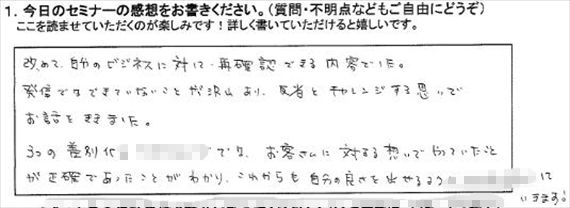 1. 今日のセミナーの感想をお書きください。(質問・不明点などもご自由にどうぞ)
ここを読ませていただくのが楽しみです！詳しく書いていただけると嬉しいです。
改めて、自分のビジネスに対して再確認できる内容でした。
発信ではできていないことが沢山あり、反省とチャレンジする思いで
お話をききました。
3つの差別化 では、お客さんに対する想いでやっていたこと
が正確であったことがわかり、これからも自分の良さを出せるよう に
いきます!